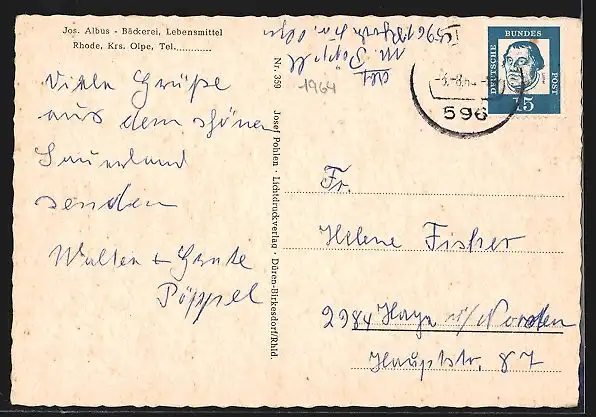 Jos. Albus - Bäckerei, Lebensmittel
Rhode, Krs. Olpe, Tel...........
Viele Grüße
aus dem schönen
Sauerland
senden
Walter + Grete
Pöppel
Nr. 359 Josef Pohlen · Lichtdruckverlag · Düren-Birkesdorf/Rhld.
Abs.
W. Pöppel
5961 Rhode Krs. Olpe
1964
596
DEUTSCHE BUNDES POST
15
Fr.
Helene Fisher
2984 Hage b/ Norden
Hauptstr. 87